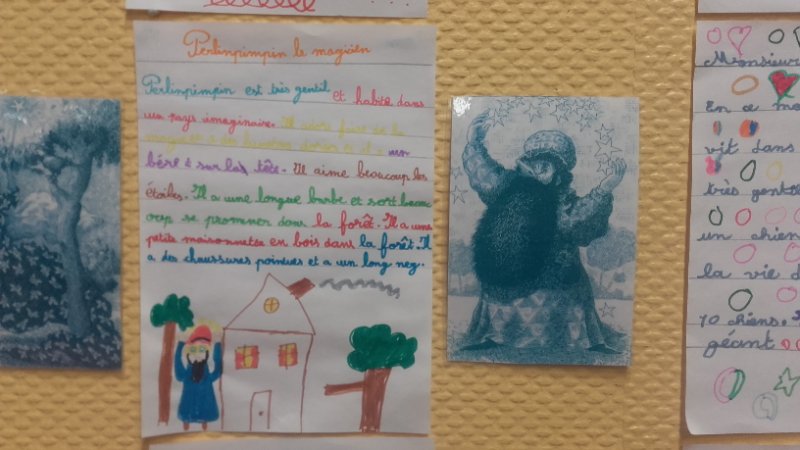 Perlinpimpin le magicien
Perlinpimpin est très gentil et habite dans
un pays imaginaire. Il adore faire de la
magie il a des lunettes dorées et il a un
béré à sur las tête. Il aime beaucoup les
étoiles. Il a une longue barbe et sort beauc
oup se promener dans la forêt. Il a une
petite maisonnates en bois dans la forêt. Il
a des chaussures pointues et a un long nez.
Monsieur
En ce mo
vit dans
très gentil
un chien
la vie d
10 chiens.
géant